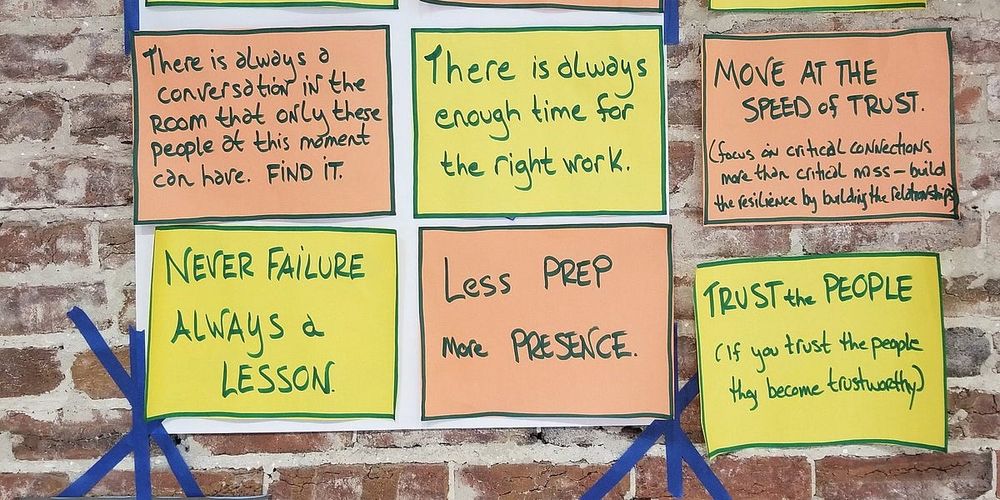 There is always a
conversation in the
ROOM that only these
people at this moment
can have. FIND IT.
There is always
enough time for
the right work.
MOVE AT THE
SPEED of TRUST.
(focus on critical connections
more than critical mass – build
the resilience by building the relationships)
NEVER FAILURE
ALWAYS a
LESSON.
Less PREP
More PRESENCE.
TRUST the PEOPLE
(If you trust the people
they become trustworthy)